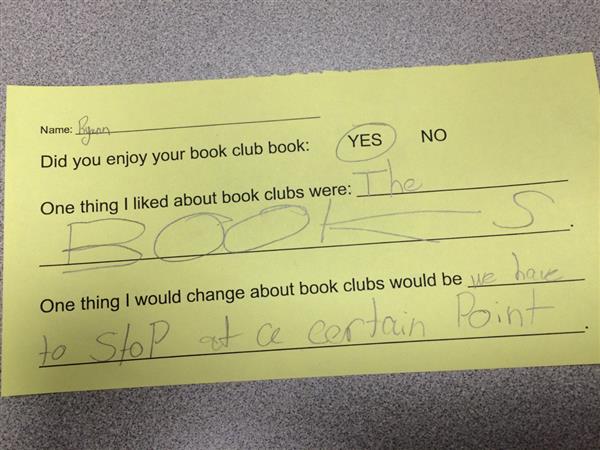 Name: Ryann
Did you enjoy your book club book: YES NO
One thing I liked about book clubs were: The
BOOKS.
One thing I would change about book clubs would be we have
to StoP at a certain Point.